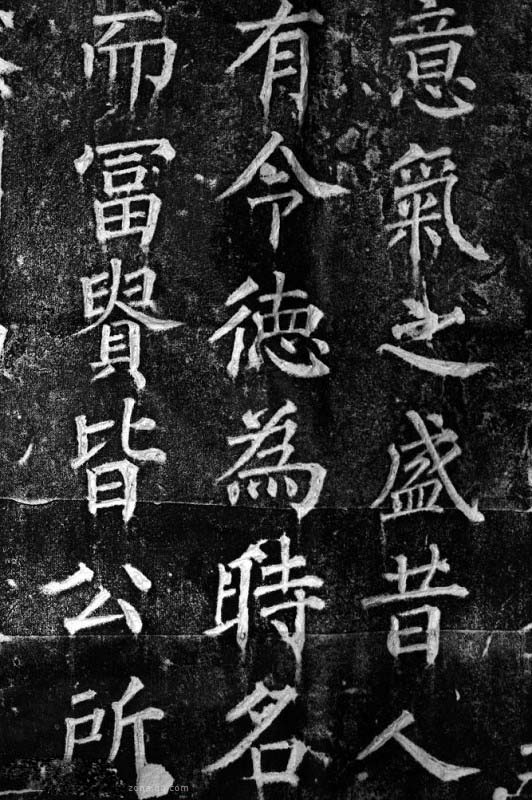 意氣之盛昔人
有令德為時名
而冨貴皆公所